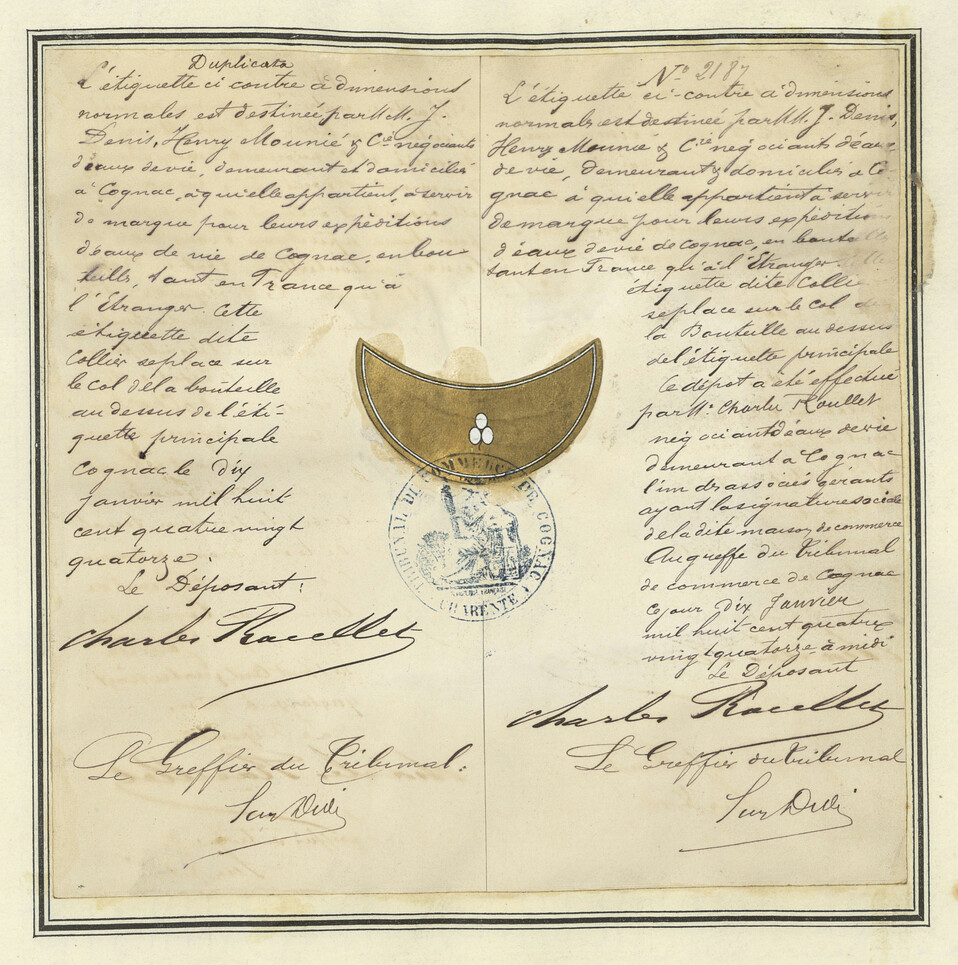 Duplicata
L'étiquette ci contre à dimensions
normales est destinée par M.M. J.
Denis, Henry Mounié & Cie négociants
d'eaux devie, demeurant et domiciliés
à Cognac, à qui elle appartient, à servir
de marque pour leurs expéditions
d'eaux de vie de Cognac, en bou
teille, tant en France qu'à
l'Etranger. Cette
étiquette dite
Collier se place sur
le col de la bouteille
au dessus de l'éti-
quette principale
Cognac le dix
janvier mil huit
cent quatre vingt
quatorze.
Le Déposant:
Charles Roullet
Le Greffier du Tribunal:
No 2187
L'étiquette ci-contre à dimensions
normals est destinée par M.M. J. Denis,
Henry Mounie & Cie négociants d'eaux
de vie, demeurant & domiciliés à Co
gnac à qui elle appartient à servir
de marque pour leurs expéditions
d'eaux de vie de Cognac, en boute
tant en France qu'à l'Etranger.
étiquette dite Collier
se place sur le col de
la Bouteille au dessus
de l'étiquette principale
Ce dépot a été effectué
par M. Charles Roullet
négociant d'éaux de vie
demeurant à Cognac
l'un des associés gérants
ayant la signature sociale
de la dite maison de commerce
Au greffe du Tribunal
de commerce de Cognac
Ce jour Dix Janvier
mil huit cent quatre
vingt quatorze à midi
Le Déposant
Charles Roullet
Le Greffier du Tribunal
TRIBUNAL DE COMMERCE DE COGNAC
CHARENTE